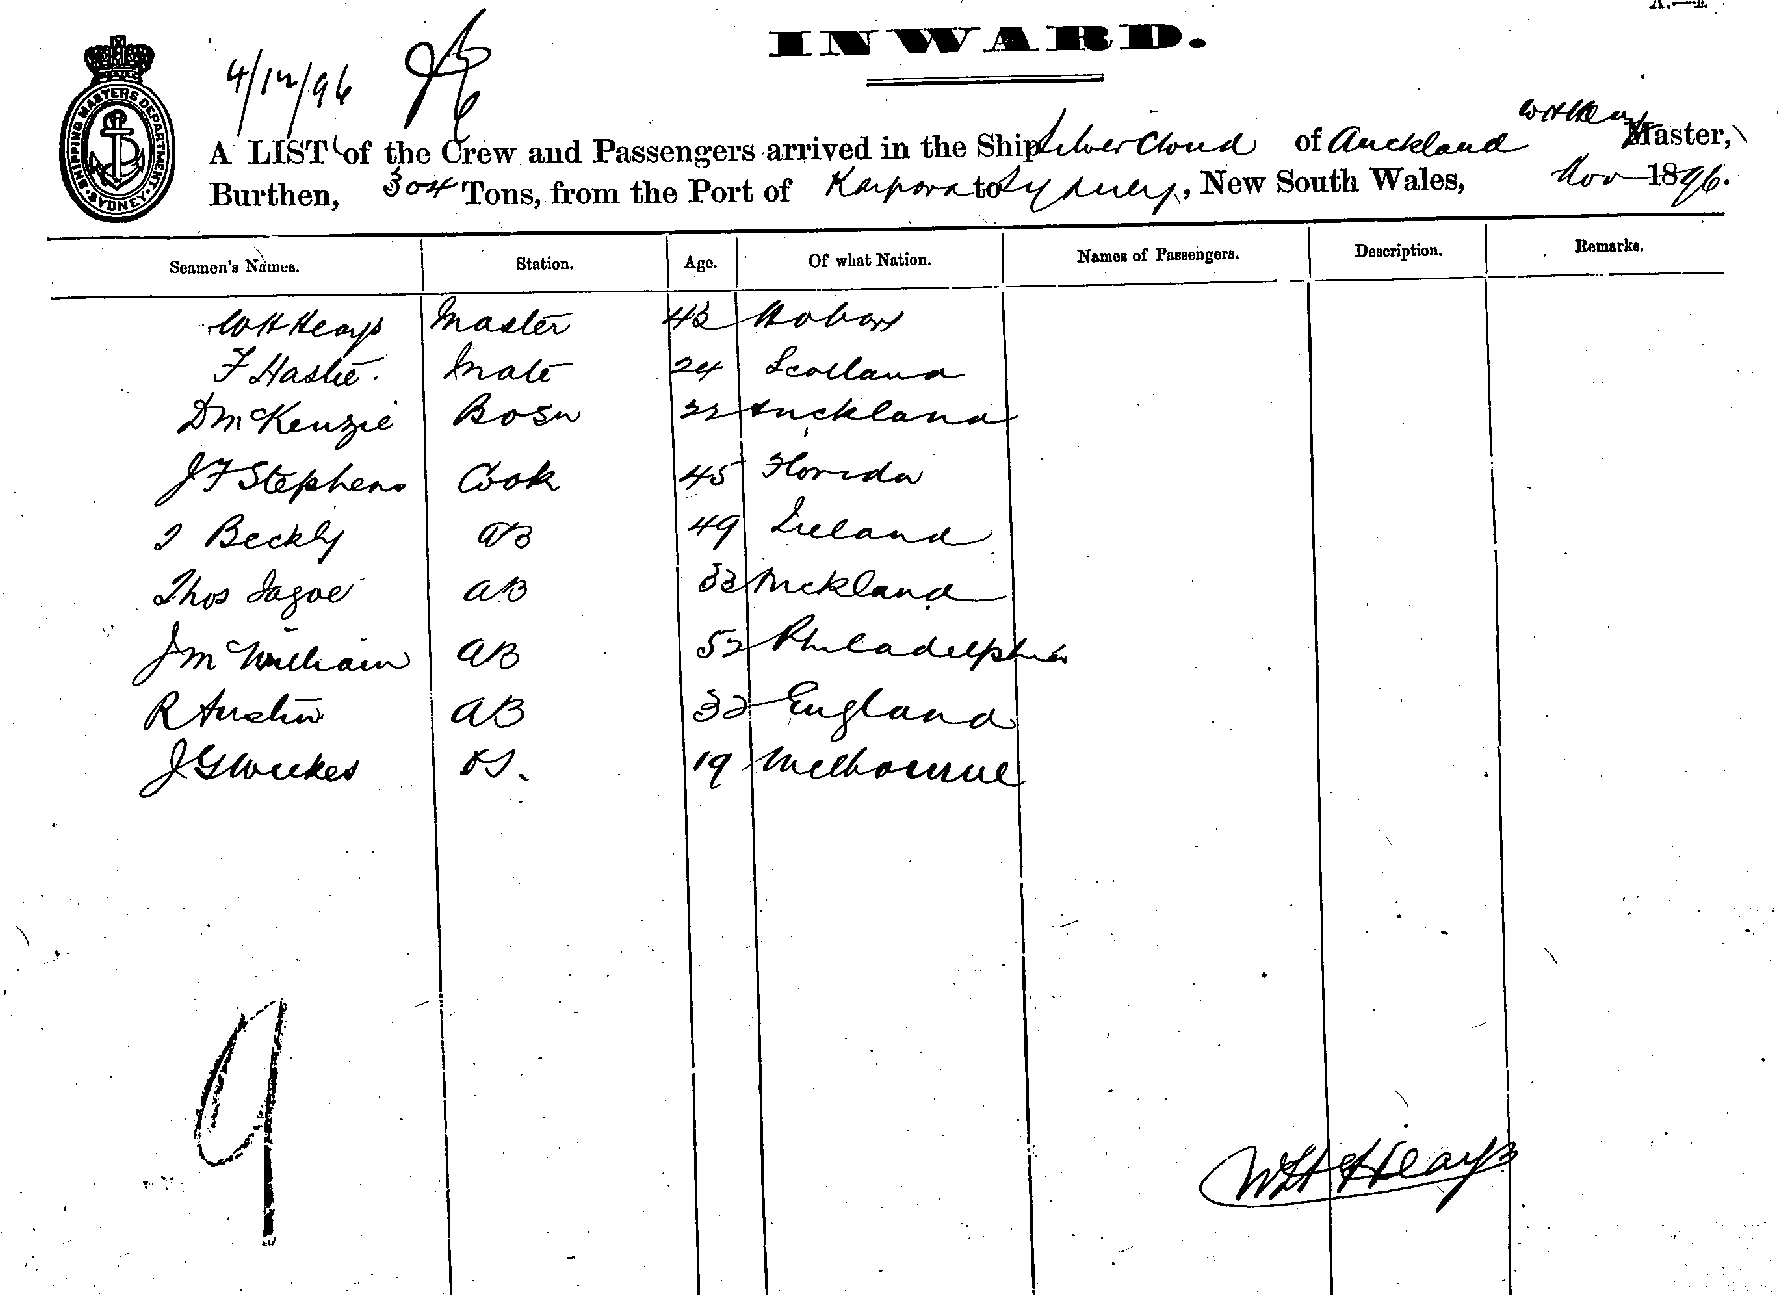 A.—1.
INWARD.
SHIPPING MASTERS DEPARTMENT SYDNEY
4/12/96
W H Heays
A LIST of the Crew and Passengers arrived in the Ship Silver Cloud of Auckland Master,
Burthen, 304 Tons, from the Port of to Sydney, New South Wales, Nov 1896.
Seamen's Names. Station. Age. Of what Nation. Names of Passengers. Description. Remarks.
W H Heays Master 43 Hobart
F Hastie. Mate 24 Scotland
D McKenzie Bosn 22 Auckland
J F Stephens Cook 45 Florida
Beckly AB 49 Ireland
Thos Jagoe AB 33 Auckland
J McWilliam AB 52 Philadelphia
R Austin AB 32 England
J G Weekes OS. 19 Melbourne
9
W H Heays